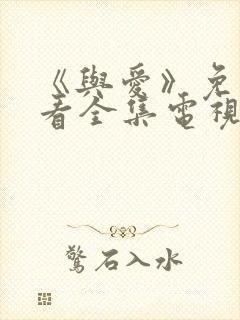 《與愛》免
看全集電視
驚石入水